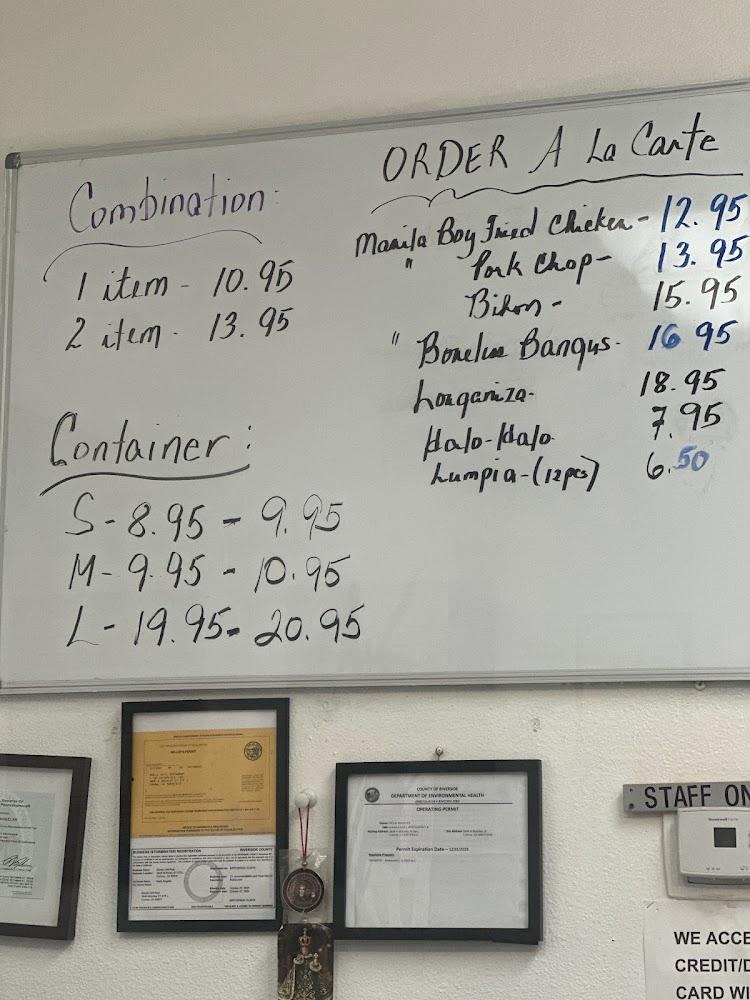 Combination:
1 item - 10.95
2 item - 13.95
Container:
S - 8.95 - 9.95
M - 9.95 - 10.95
L - 19.95 - 20.95
ORDER A La Carte
Manila Boy Fried Chicken - 12.95
" Pork Chop - 13.95
Bihon - 15.95
" Boneless Bangus - 16.95
Longaniza - 18.95
Halo-Halo 7.95
Lumpia - (12pcs) 6.50
SELLER'S PERMIT
BUSINESS REGISTRATION
RIVERSIDE COUNTY
COUNTY OF RIVERSIDE
DEPARTMENT OF ENVIRONMENTAL HEALTH
OPERATING PERMIT
Permit Expiration Date -
STAFF ON
WE ACCE
CREDIT/D
CARD WI